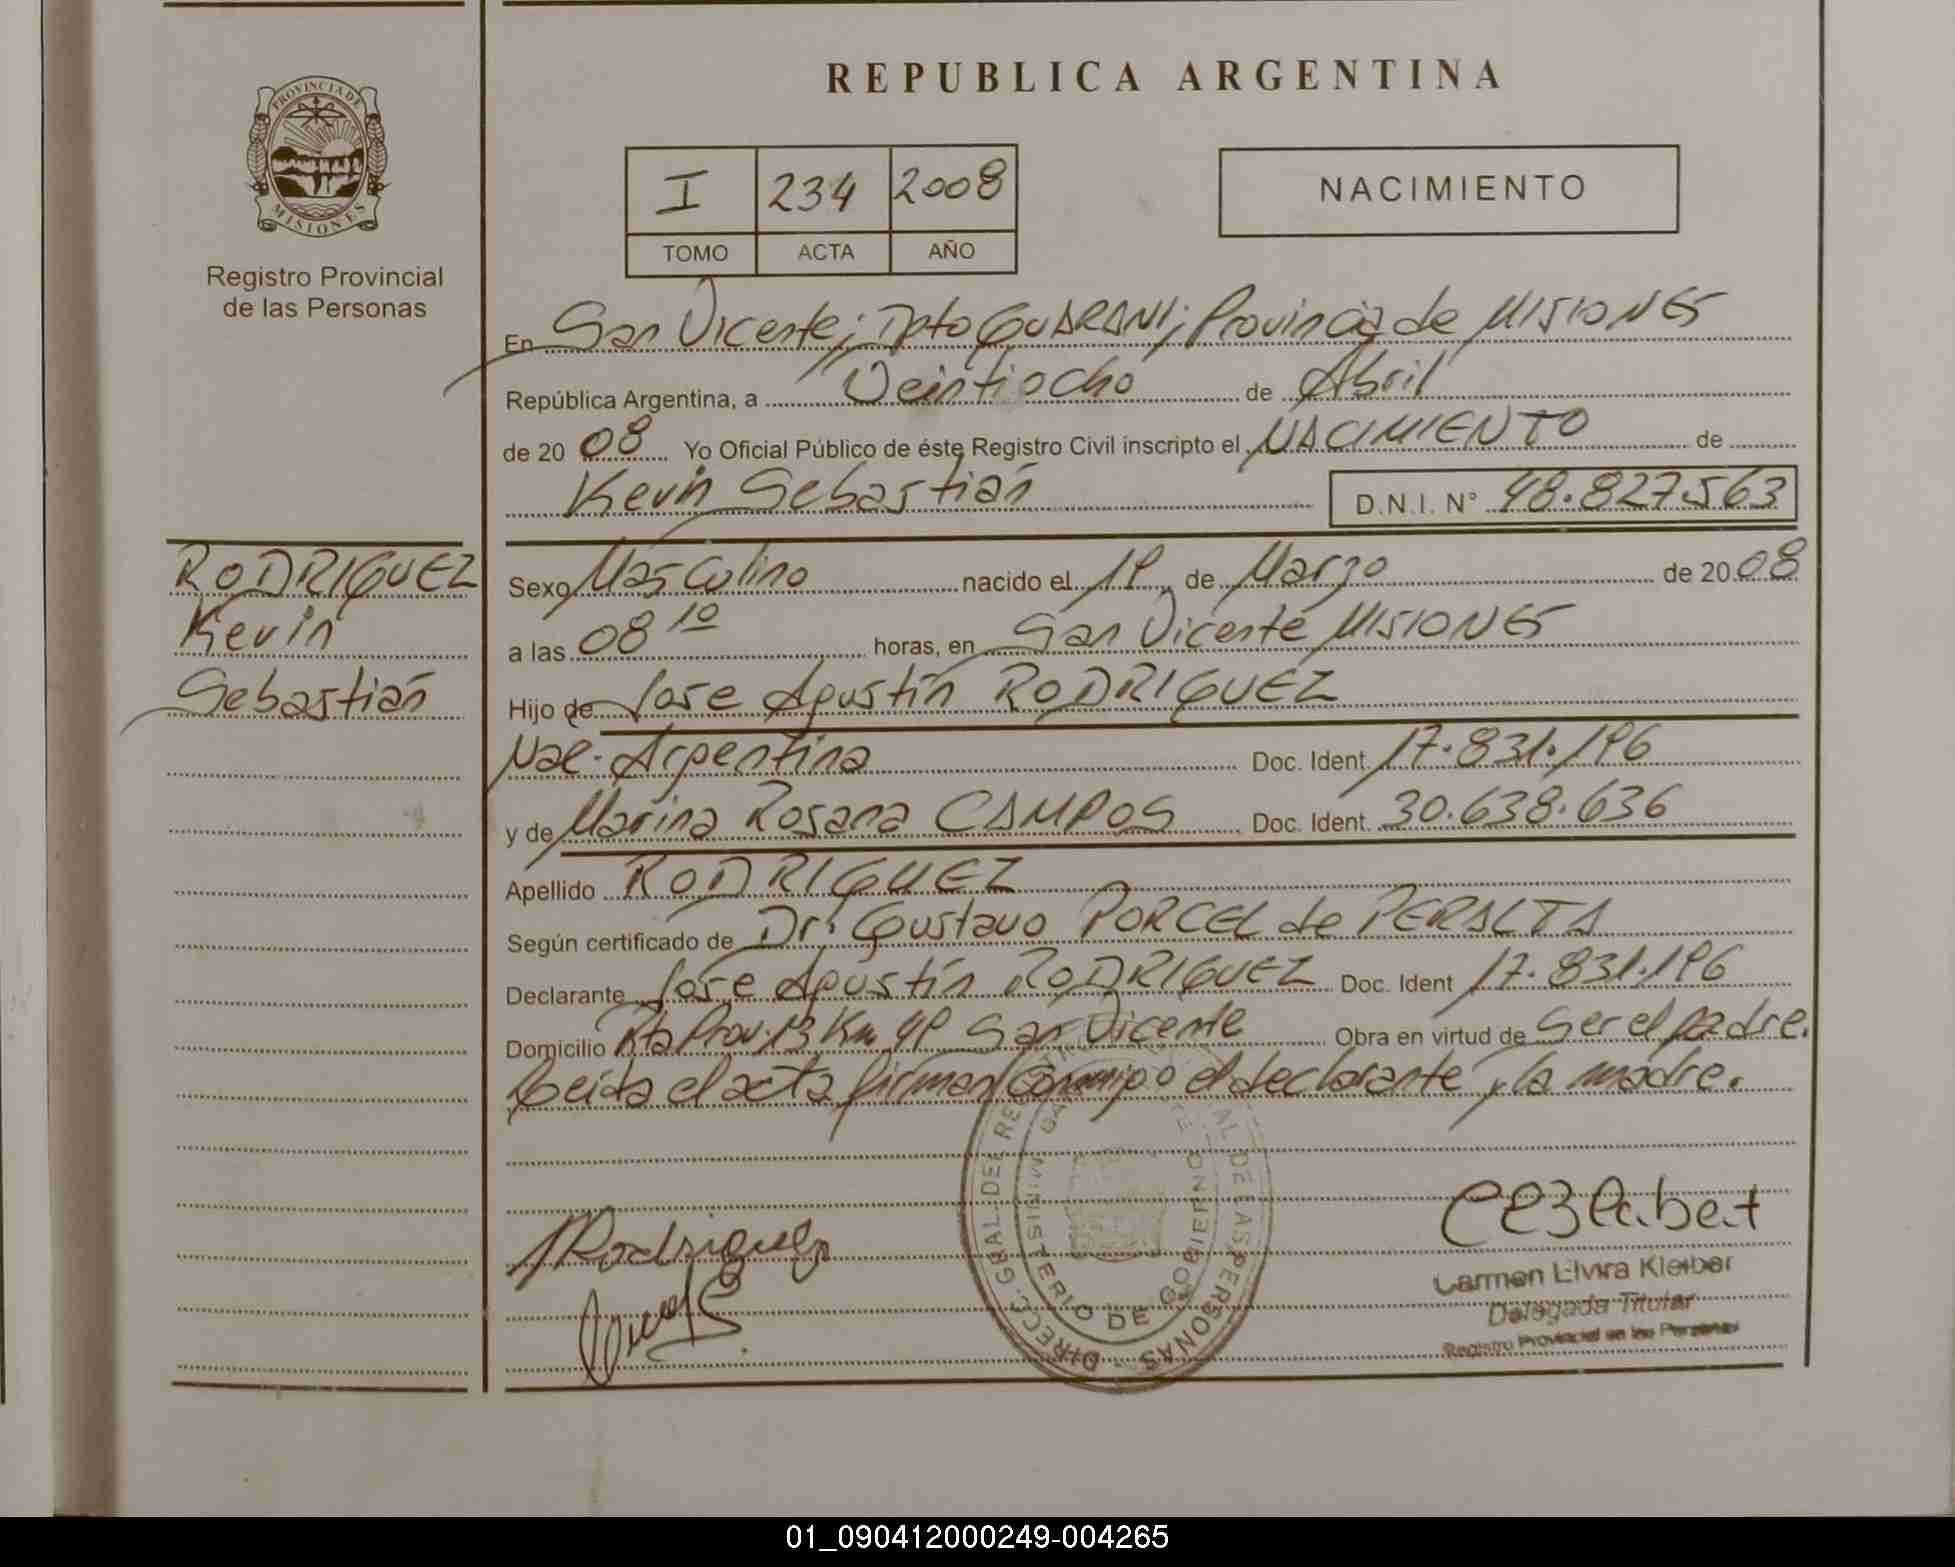 REPUBLICA ARGENTINA
PROVINCIA DE MISIONES
Registro Provincial
de las Personas
I 234 2008
TOMO ACTA AÑO
NACIMIENTO
En San Vicente; Dpto GUARANI; Provincia de MISIONES
República Argentina, a Veintiocho de Abril
de 2008 Yo Oficial Público de éste Registro Civil inscripto el NACIMIENTO de
Kevin Sebastián D.N.I. N° 48.827.563
RODRIGUEZ
Kevin
Sebastián
Sexo Masculino nacido el 19 de Marzo de 2008
a las 08 10 horas, en San Vicente MISIONES
Hijo de Jose Agustín RODRIGUEZ
Nac. Argentina Doc. Ident. 17.831.196
y de Marina Rosana CAMPOS Doc. Ident. 30.638.636
Apellido RODRIGUEZ
Según certificado de Dr. Gustavo PORCEL de PERALTA
Declarante Jose Agustín RODRIGUEZ Doc. Ident 17.831.196
Domicilio Rta Prov. 13 Km 49 San Vicente Obra en virtud de Ser el padre.
Leida el acta firman conmigo el declarante y la madre.
Rodriguez
DIRECC. GRAL. DE LAS PERSONAS
MINISTERIO DE GOBIERNO
Carmen Elvira Kleiber
Delegada Titular
Registro Provincial de las Personas
01_090412000249-004265